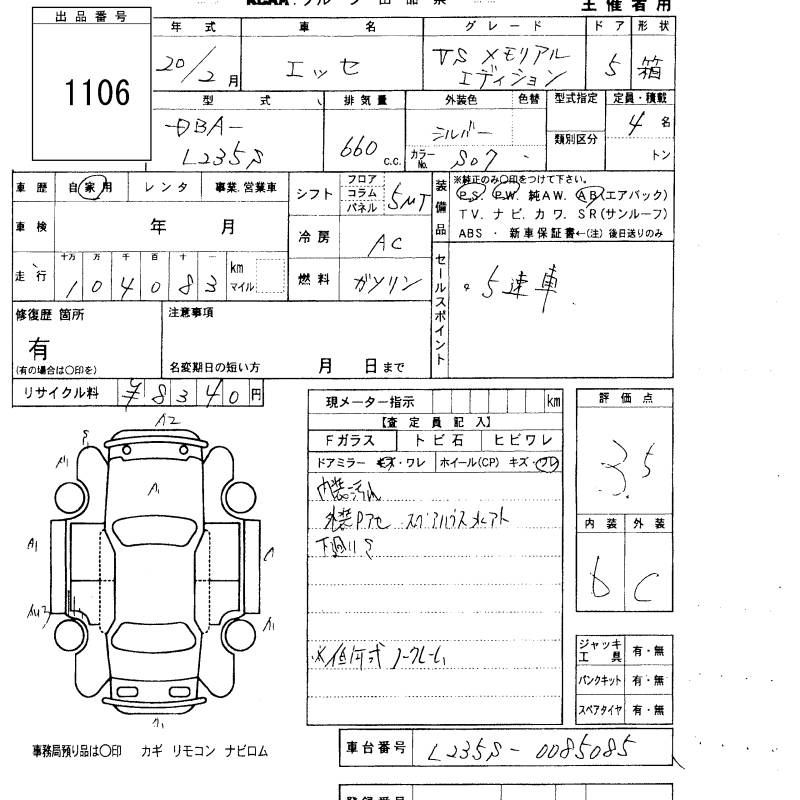 主催者用
出品番号
1106
年式 車名 グレード ドア 形状
20/2月 エッセ VSメモリアル
エディション 5 箱
型式 排気量 外装色 色替 型式指定 定員・積載
DBA-
L235S 660 c.c. シルバー 類別区分 4 名
カラーNo. S07 トン
車歴 自家用 レンタ 事業、営業車
シフト フロア コラム パネル 5MT
車検 年 月
冷房 AC
走行 十万 万 千 百 十 一 104083 km マイル
燃料 ガソリン
装備品
※純正のみ〇印をつけて下さい。
PS. PW. 純AW. AB(エアバック)
TV. ナビ. カワ. SR(サンルーフ)
ABS ・ 新車保証書←(注) 後日送りのみ
セールスポイント
・5速車
修復歴 箇所
有
(有の場合は〇印を)
注意事項
名変期日の短い方 月 日まで
リサイクル料 ¥8340円
現メーター指示 km
【査定員記入】
Fガラス トビ石 ヒビワレ
ドアミラー キズ・ワレ ホイール(CP) キズ・ワレ
内装汚れ
下廻りS
評価点
3.5
内装 外装
b C
A2
S
A1
A1
A1
A1
A1
ジャッキ
工具 有・無
パンクキット 有・無
スペアタイヤ 有・無
事務局預り品は〇印 カギ リモコン ナビロム
車台番号 L235S-0085085